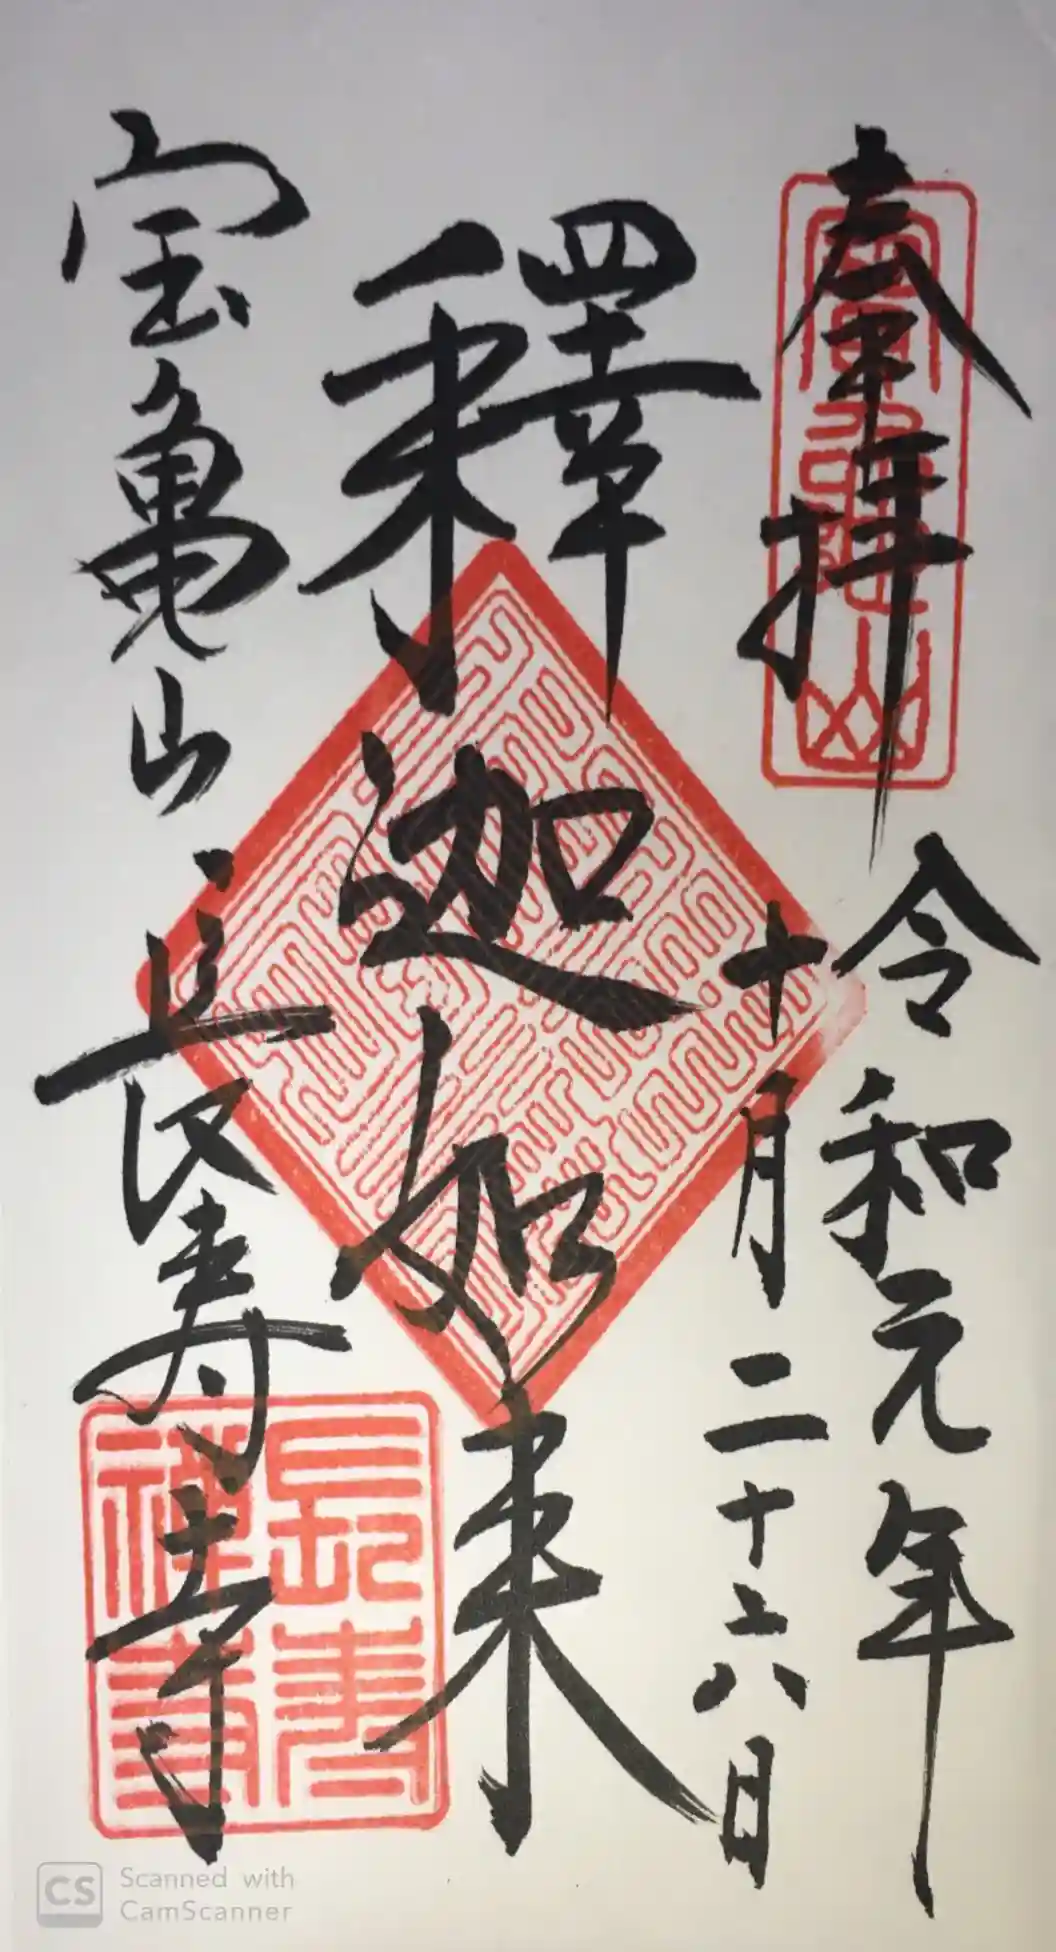 奉拝
令和元年
十月二十六日
釋迦如来
宝亀山
長寿寺
長寿禅寺
Scanned with
CamScanner
CS